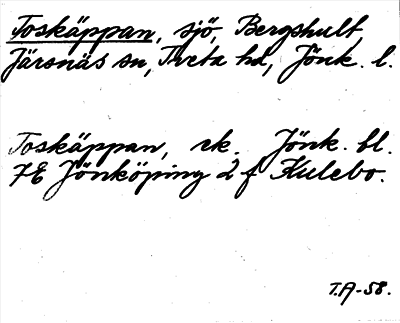 Toskäppan, sjö, Bergshult,
Järsnäs sn, Tveta hd, Jönk. l.
Toskäppan, ek. Jönk. bl.
7E Jönköping 2 f Kulebo.
T.A-58.